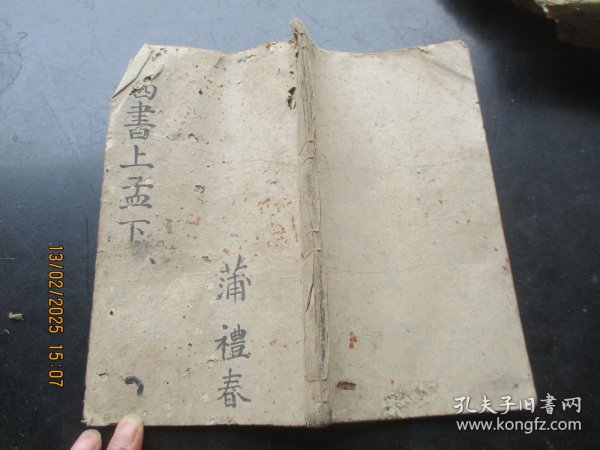 四書上孟下
蒲禮春
13/02/2025 15:07
孔夫子旧書网
www.kongfz.com